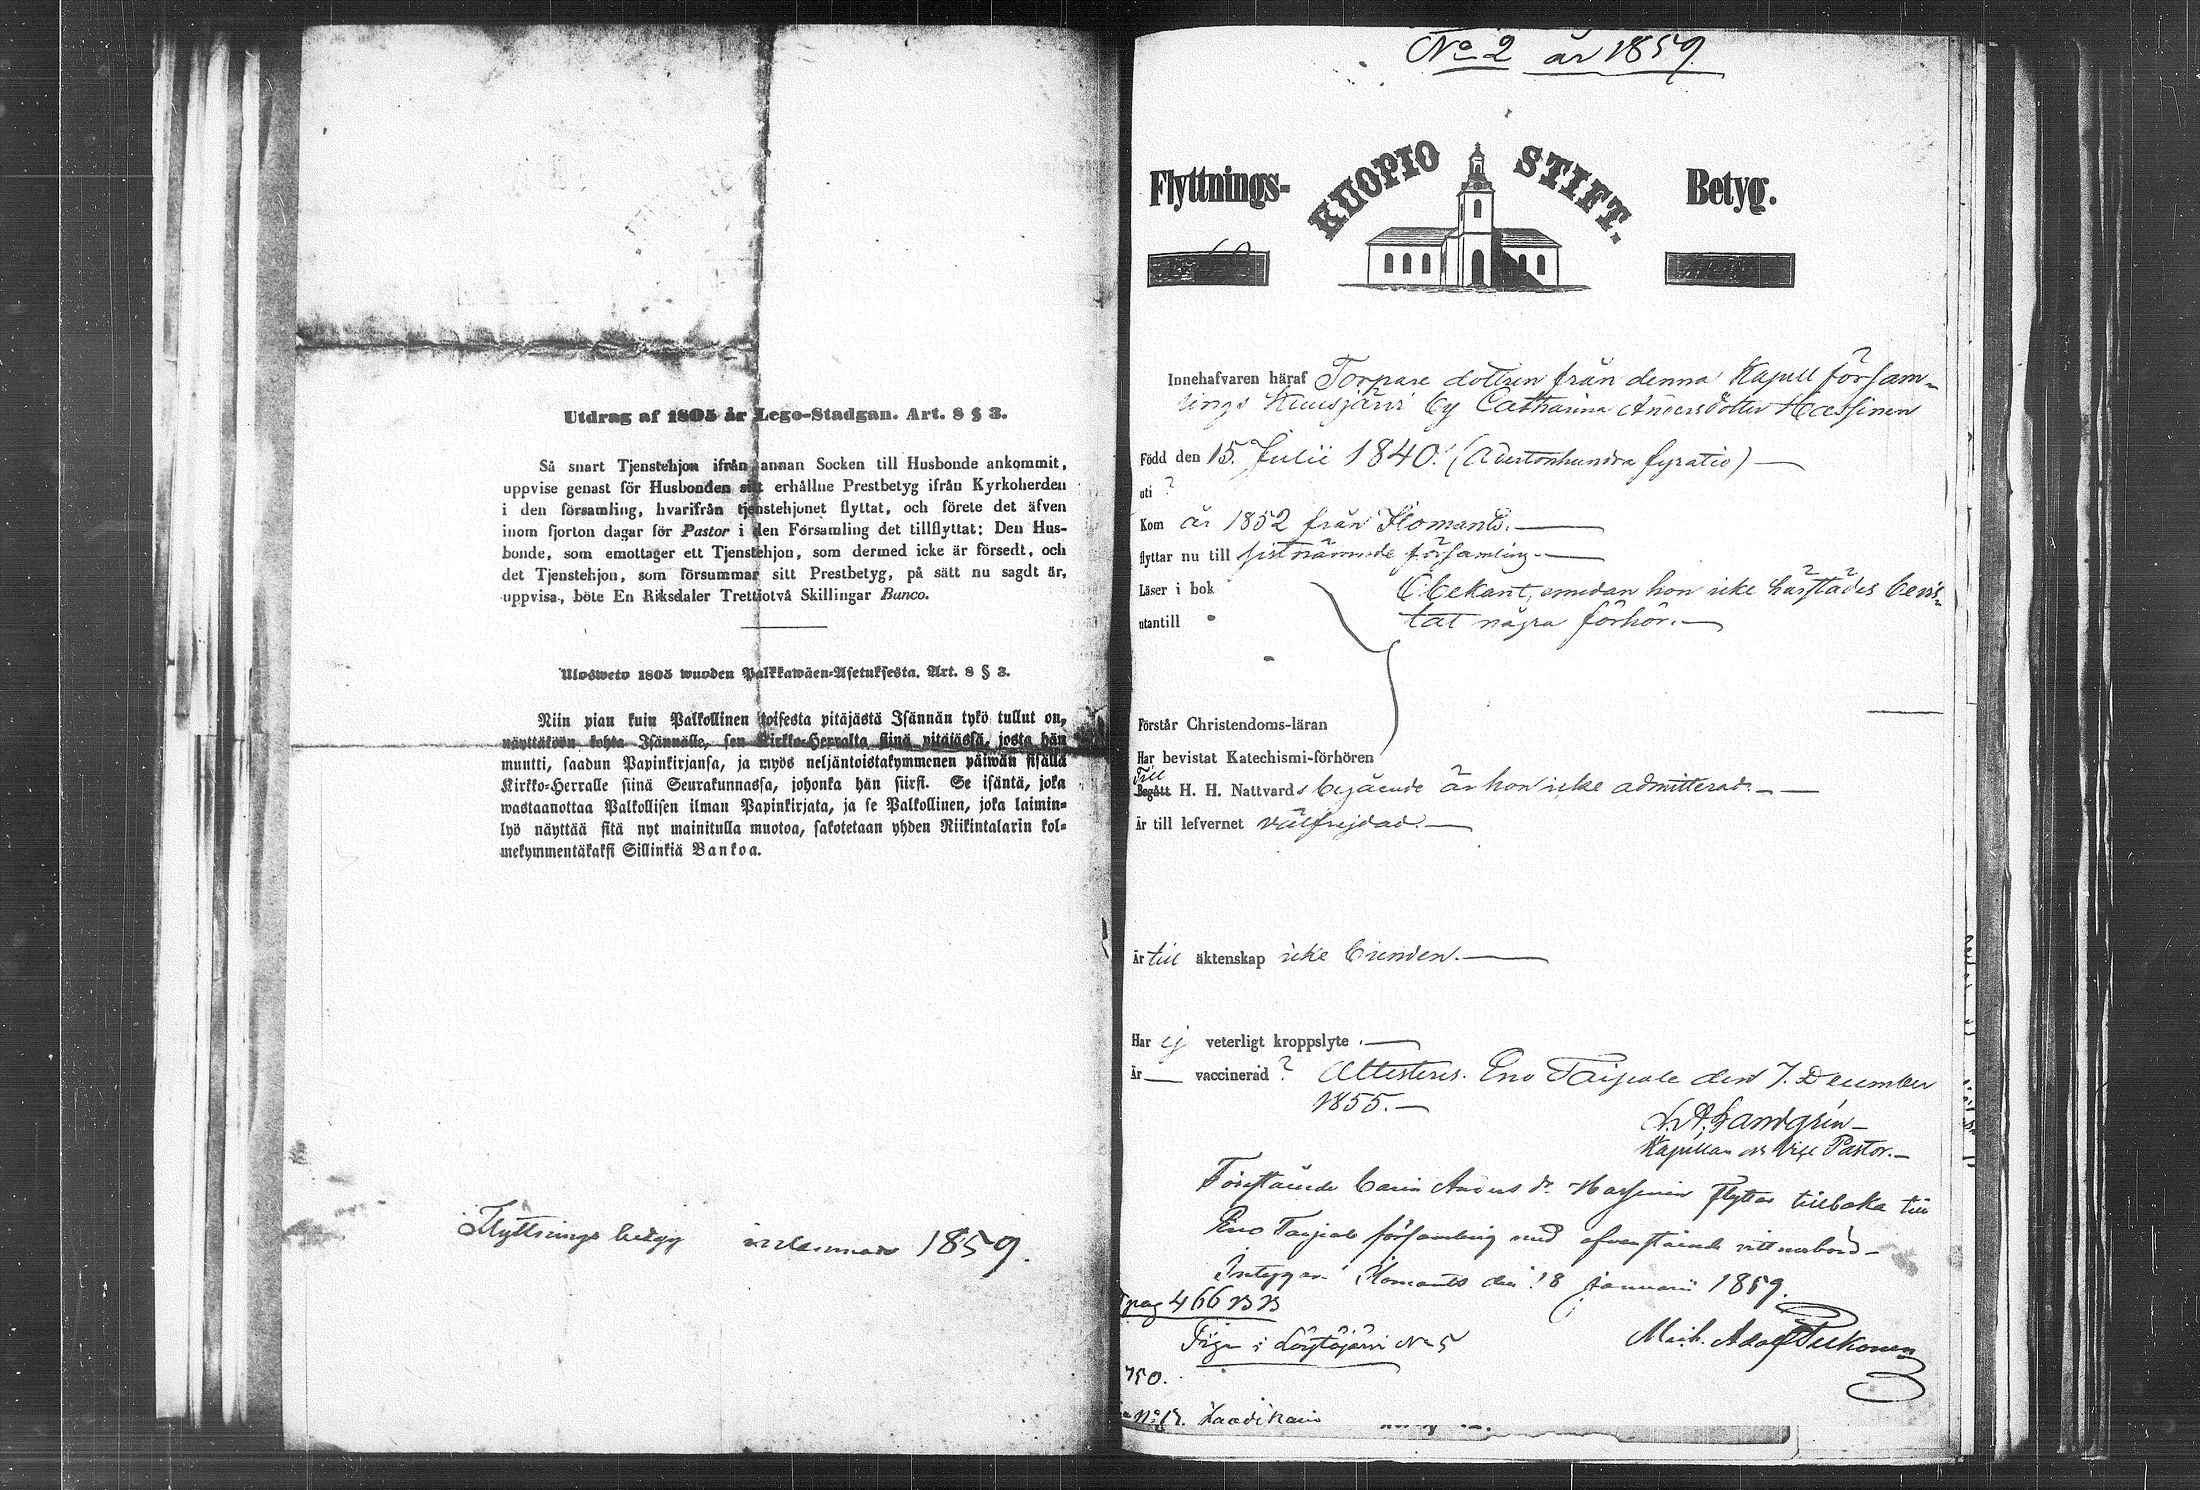 Utdrag af 1805 år Lego-Stadgan. Art. 8 § 3.
Så snart Tjenstehjon ifrån annan Socken till Husbonde ankommit,
uppvise genast för Husbonden sitt erhållne Prestbetyg ifrån Kyrkoherden
i den församling, hvarifrån tjenstehjonet flyttat, och förete det äfven
inom fjorton dagar för Pastor i den Församling det tillflyttat: Den Hus-
bonde, som emottager ett Tjenstehjon, som dermed icke är försedt, och
det Tjenstehjon, som försummar sitt Prestbetyg, på sätt nu sagdt är,
uppvisa, böte En Riksdaler Trettiotvå Skillingar Banco.
Ulosweto 1805 wuoden Palkkawäen-Asetuksesta. Art. 8 § 3.
Niin pian kuin Palkollinen toisesta pitäjästä Isännän tykö tullut on,
näyttäköön kohta Isännälle, sen Kirkko-Herralta siinä pitäjässä, josta hän
muutti, saadun Papinkirjansa, ja myös neljäntoistakymmenen päiwän sisällä
Kirkko-Herralle siinä Seurakunnassa, johonka hän siirsi. Se isäntä, joka
wastaanottaa Palkollisen ilman Papinkirjata, ja se Palkollinen, joka laimin-
lyö näyttää sitä nyt mainitulla muotoa, sakotetaan yhden Riikintalarin kol-
mekymmentäkaksi Sillinkiä Bankoa.
Flyttnings betyg inlemnade 1859.
No 2 år 1859
Flyttnings- KUOPIO STIFT. Betyg.
Innehafvaren häraf Torpare dottren från denna Kapell försam-
lings Kuusjärvi by Catharina Andersdotter Hassinen
Född den 15. Julii 1840. (Adertonhundra fyratio)
uti ?
Kom år 1852 från Ilomants.
flyttar nu till sistnämnde församling.
Läser i bok Obekant, emedan hon icke härstädes bevis-
utantill tat några förhör.
Förstår Christendoms-läran
Har bevistat Katechismi-förhören
Till
Begått H. H. Nattvards begående är hon icke admitterad.
Är till lefvernet välfrejdad.
Är till äktenskap icke bunden.
Har ej veterligt kroppslyte.
Är vaccinerad ? Attesteras. Eno Taipale den 7. December
1855.
Kapellan och Vice Pastor.
Föreståënde Carin Anders dr. Hassinen flyttar tillbaka till
Eno Taipale församling med ofvanstående vittnesbörd
Intygar Ilomants den 18 Januarii 1859.
pag 466
Piga i Löytöjärvi No 5
Math. Adolf Pelkonen
750.
No 19.